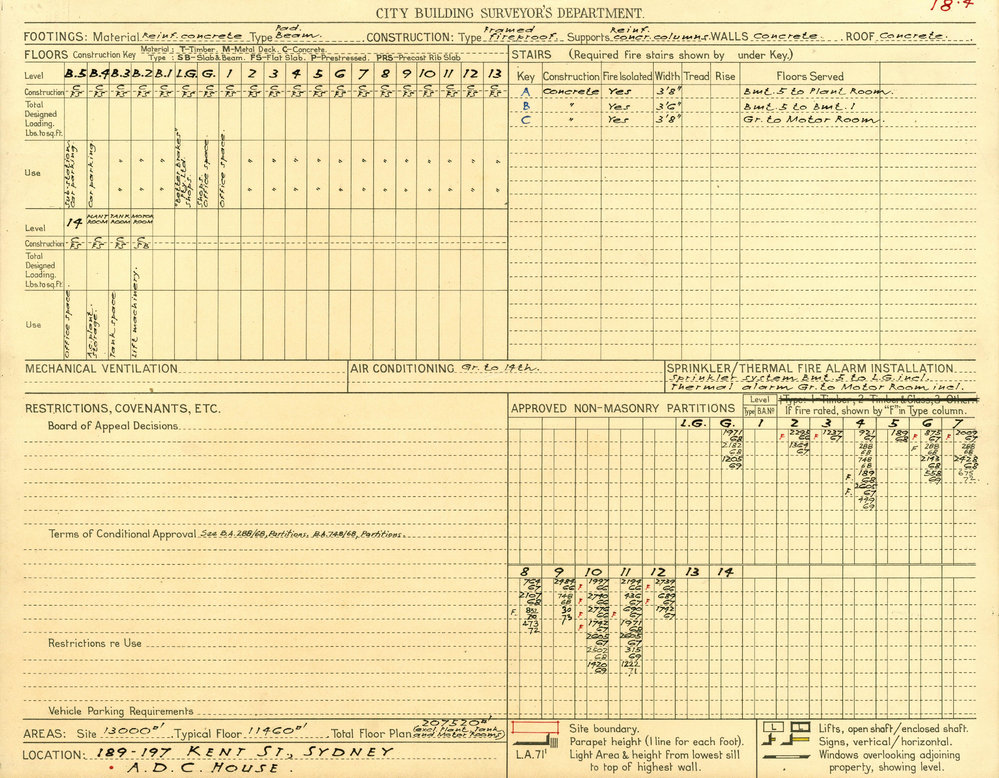 18.4
CITY BUILDING SURVEYOR'S DEPARTMENT.
FOOTINGS: Material Reinf. concrete Type Pad. Beam. CONSTRUCTION: Type Framed fireproof. Supports Reinf. concr. columns WALLS Concrete. ROOF Concrete.
FLOORS Construction Key Material: T-Timber. M-Metal Deck. C-Concrete.
Type: SB-Slab & Beam. FS-Flat Slab. P-Prestressed. PRS-Precast Rib Slab
STAIRS (Required Fire stairs shown by under Key.)
Level B.5 B.4 B.3 B.2 B.1 L.G. G. 1 2 3 4 5 6 7 8 9 10 11 12 13
Construction C/FS C/FS C/FS C/FS C/FS C/FS C/FS C/FS C/FS C/FS C/FS C/FS C/FS C/FS C/FS C/FS C/FS C/FS C/FS C/FS
Total Designed Loading. Lbs.to sq.ft.
Use
Sub-station. Car parking.
Car parking.
" " " 
"Better Brakes" Pty Ltd. Shops.
Shops. Office space.
Office space.
" " " " " " " " " " " "
Key Construction Fire Isolated Width Tread Rise Floors Served
A Concrete Yes 3'8" Bmt. 5 to Plant Room.
B " Yes 3'6" Bmt. 5 to Bmt. 1
C " Yes 3'8" Gr. to Motor Room.
Level 14 PLANT ROOM TANK ROOM MOTOR ROOM
Construction C/FS C/FS C/FS C/SB
Total Designed Loading. Lbs.to sq.ft.
Use
Office space.
Ac. plant. Storage.
Tank space
Lift machinery.
MECHANICAL VENTILATION
AIR CONDITIONING Gr. to 14th.
SPRINKLER/THERMAL FIRE ALARM INSTALLATION
Sprinkler system Bmt. 5 to L.G. incl.
Thermal alarm Gr. to Motor Room incl.
RESTRICTIONS, COVENANTS, ETC.
Board of Appeal Decisions.
Terms of Conditional Approval See B.A. 288/68, Partitions. B.A. 748/68, Partitions.
Restrictions re Use
Vehicle Parking Requirements
APPROVED NON-MASONRY PARTITIONS
Level
Type B.A.Nº
Type: 1-Timber, 2-Timber & Glass, 3-Other.
If fire rated, shown by "F" in Type column.
L.G. G. 1 2 3 4 5 6 7
1971/68 2182/68 1205/69
F 2295/66 1364/67
F 1237/67
921/67 288/68 748/68 F. 189/68 F. 2605/67 449/69
189/68
F 875/67 F 288/68 2193/68 558/69
2009/67 288/68 2428/68 675/72
8 9 10 11 12 13 14
764/67 2107/68 F. 832/70 473/72
2484/66 748/68 30/73
F 1997/66 F 2740/66 F 2776/66 F 1742/67 2605/67 2602/68 1420/69
2194/66 436/67 F 690/67 1971/68 2605/67 315/69 1222/71
F 2739/66 F 689/67 1742/67
AREAS: Site 13000□' Typical Floor 11460□' Total Floor Plan 207520□' (excl Plant, Tank and Motor Rooms)
LOCATION: 189-197 KENT ST., SYDNEY
A.D.C. HOUSE.
Site boundary.
Parapet height (1 line for each foot).
L.A.71' Light Area & height from lowest sill to top of highest wall.
L L Lifts, open shaft/enclosed shaft.
Signs, vertical/horizontal.
Windows overlooking adjoining property, showing level.